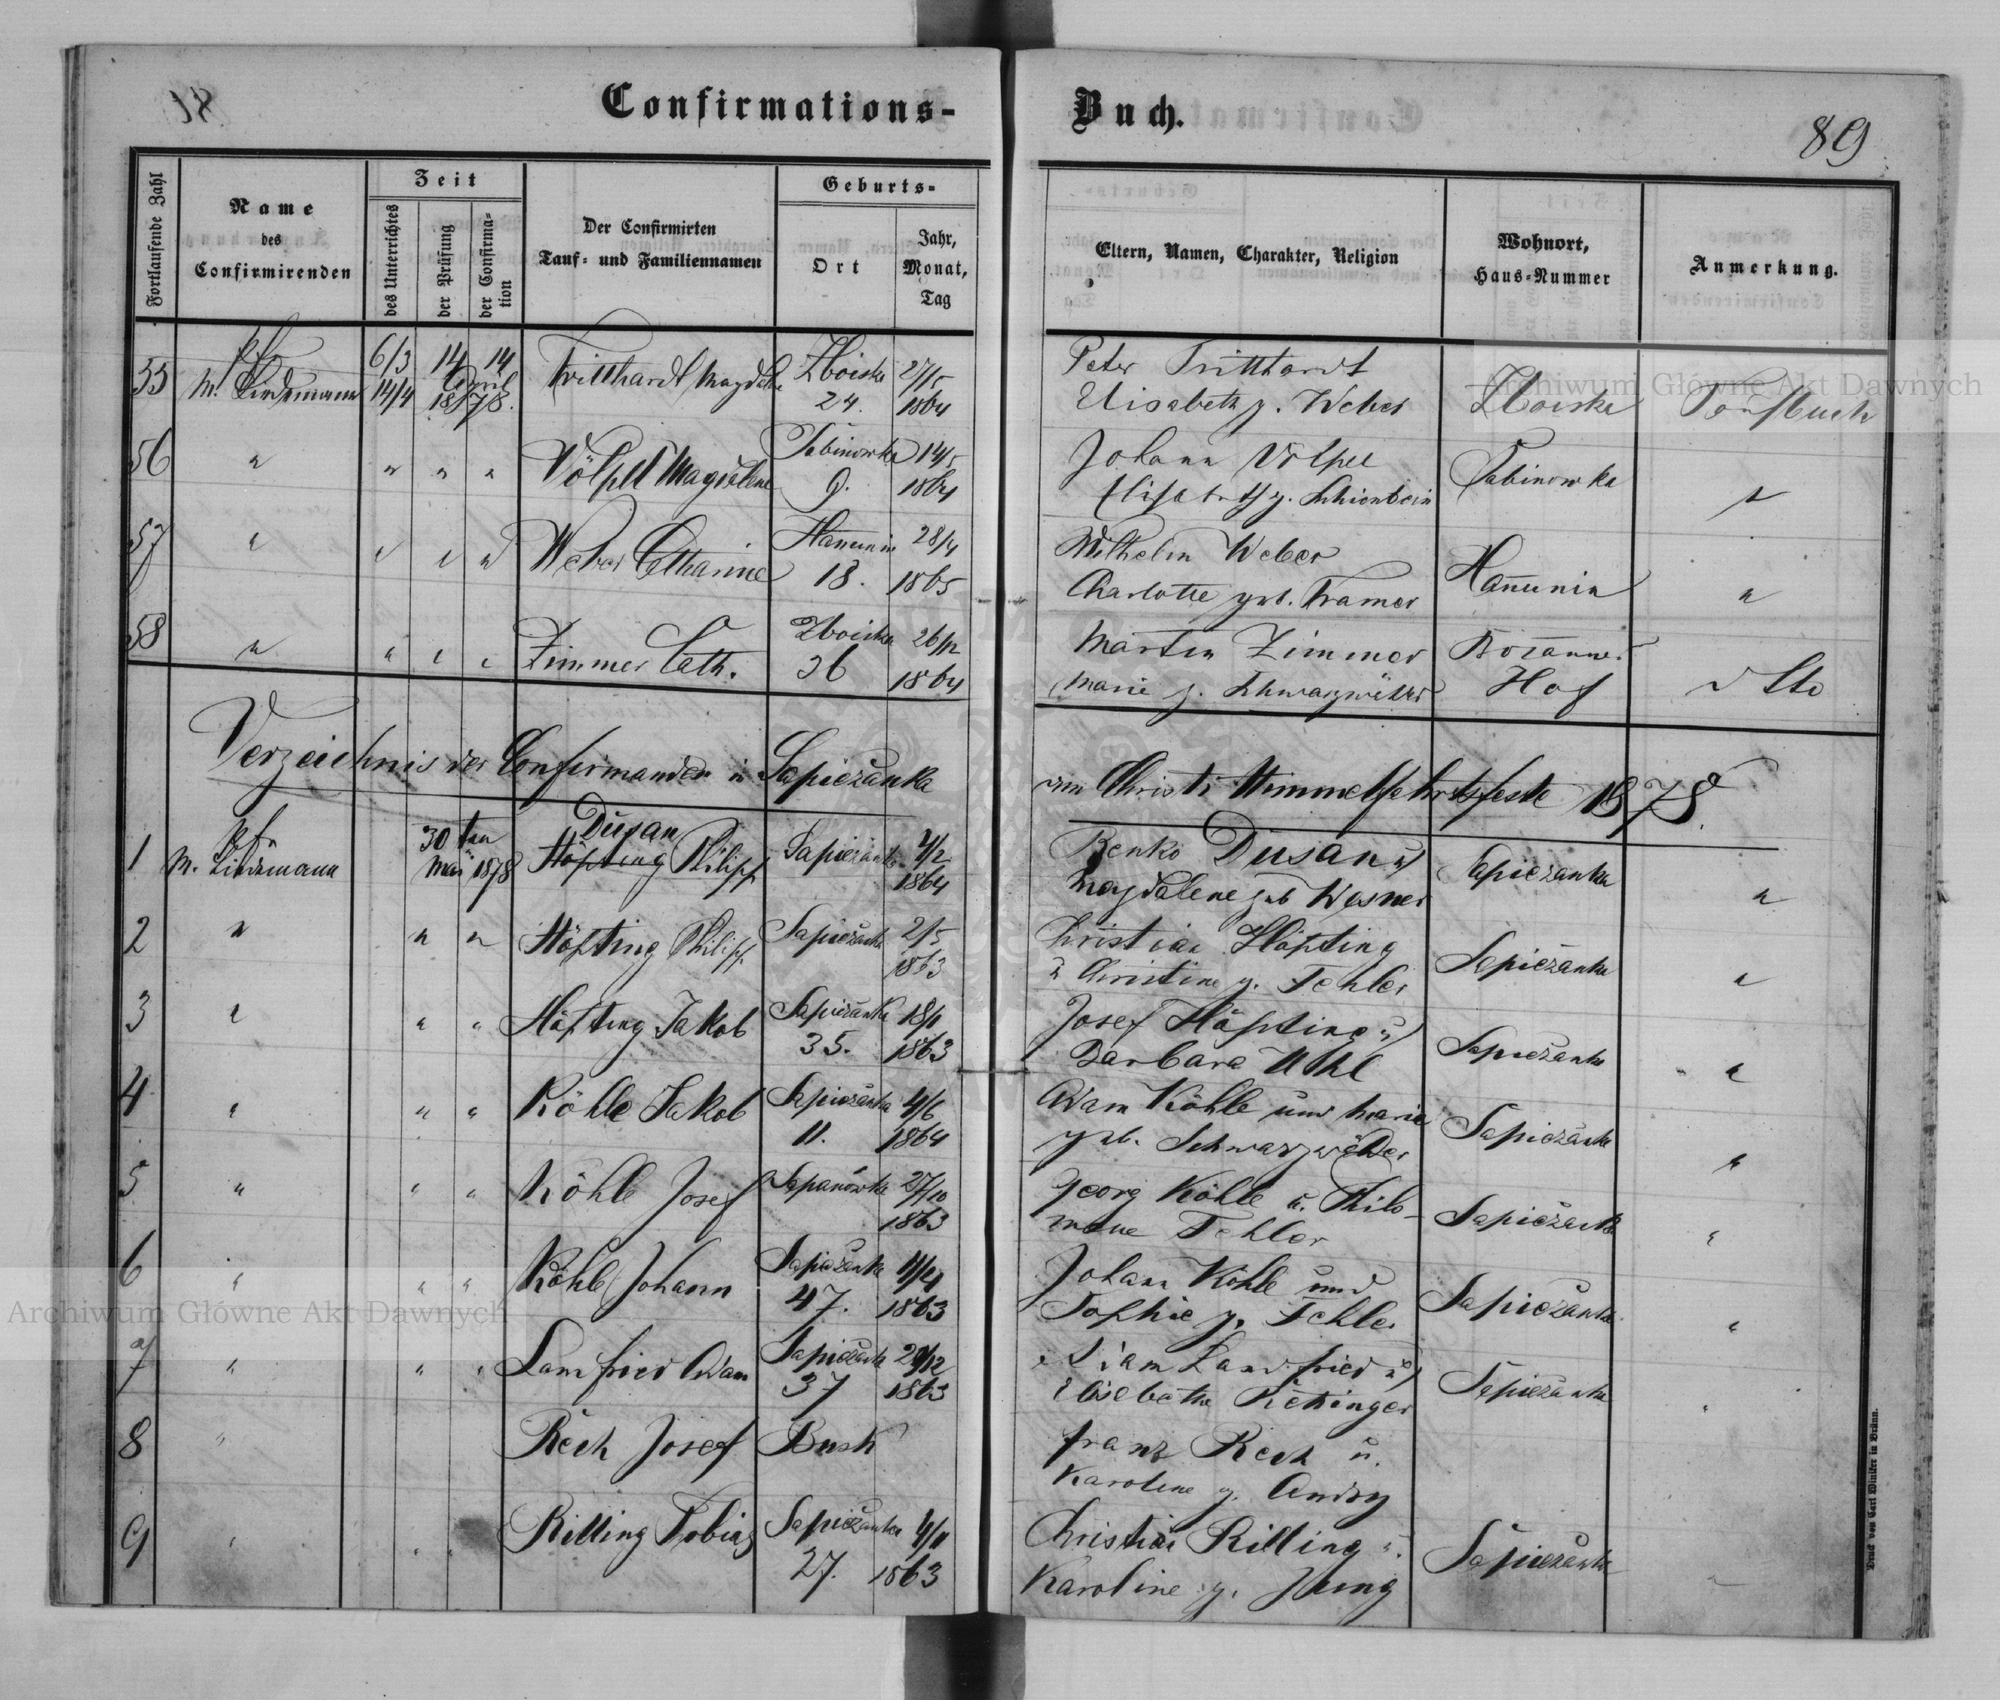 Confirmations-
Buch.
89
Fortlaufende Zahl
Name
des
Confirmirenden
Zeit
des Unterrichtes
der Prüfung
der Confirma-
tion
Der Confirmirten
Tauf- und Familiennamen
Geburts-
Ort
Jahr,
Monat,
Tag
Eltern, Namen, Charakter, Religion
Wohnort,
Haus-Nummer
Anmerkung.
55 M. Lindemann 6/3 14/4 14 14 April 1878. Tritthardt Zboiska 24. 27/5 1864
Peter Tritthardt
Elisabeth g. Weber
Zboiska
Taufbuch
56 " " " " Völpel Magdalene Sabinowka 9. 14/5 1864
Johann Völpel
Elisabeth g. Schienbein
Sabinowka
"
57 " " " " Weber Catharine Hanunin 18. 28/4 1865
Wilhelm Weber
Charlotte geb. Kramer
Hanunin
"
58 " " " " Zimmer Cath. Zboiska 36 26/12 1864
Martin Zimmer
Marie g. Schwarzwälder
Hof
dto
Verzeichnis der Confirmanden in Sapiezanka
am Christi Himmelfahrtsfeste 1878.
1 Pf. M. Lindemann 30ten Mai 1878 Dusan Höfting Philipp Sapiezanka 4/2 1864
Benko Dusan u
Magdalene geb Wesner
Sapiezanka
"
2 " " " Höfting Philipp Sapiezanka 2/5 1863
Christian Höfting
u Christine g. Fehler
Sapiezanka
"
3 " " " Höfting Jakob Sapiezanka 35. 18/1 1863
Josef Höfting u
Barbara Uhl
Sapiezanka
"
4 " " " Köhle Jakob Sapiezanka 11. 4/6 1864
Adam Köhle und Marie
geb. Schwarzwälder
Sapiezanka
"
5 " " " Köhle Josef Sapanówka 27/10 1863
Georg Köhle u. Philo-
mene Fehler
Sapiezanka
"
6 " " " Köhle Johann Sapiezanka 47. 11/4 1863
Johann Köhle und
Sophie g. Fehler
Sapiezanka
"
7 " " " Lanfried Adam Sapiezanka 37 29/12 1863
Adam Lanfried u
Elisabethe Rettinger
Sapiezanka
"
8 " Rech Josef Busk
Franz Rech u.
Karoline g.
9 " " " Rilling Tobias Sapiezanka 27. 4/11 1863
Christian Rilling u.
Karoline g. Jung
Sapiezanka
"
Druck von Carl Winiker in Brünn.
Archiwum Główne Akt Dawnych
Archiwum Główne Akt Dawnych